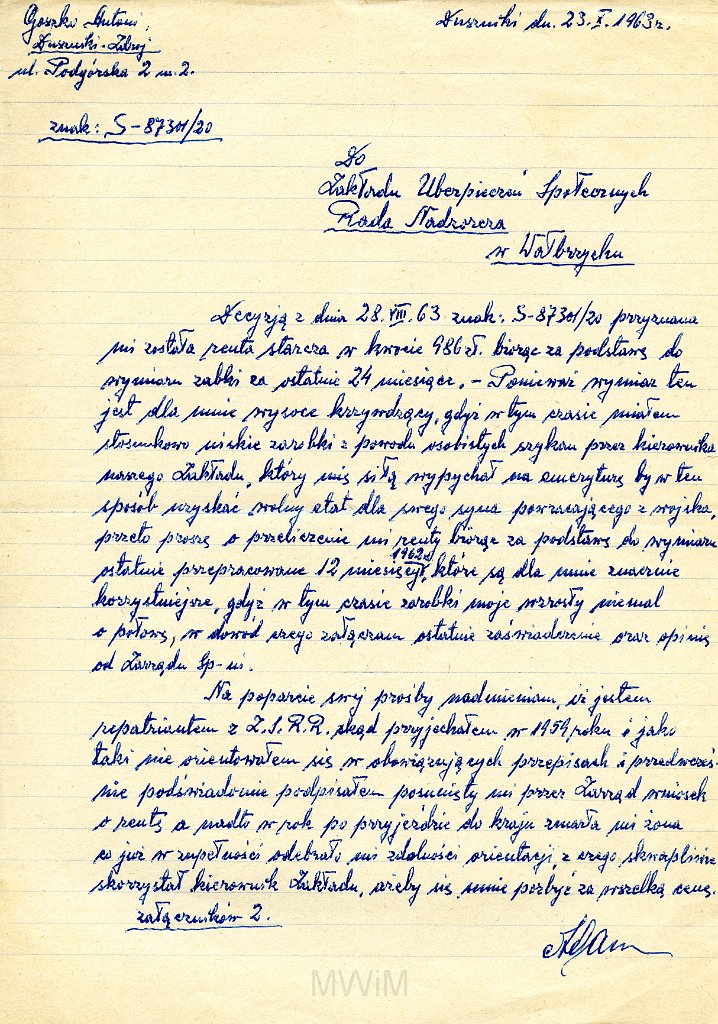 Goszko Antoni,
Duszniki-Zdrój
ul. Podgórska 2 m. 2.
Duszniki dn. 23.X.1963 r.
znak: S-87301/20
Do
Zakładu Ubezpieczeń Społecznych
Rada Nadzorcza
w Wałbrzychu
Decyzją z dnia 28.VIII.63 znak: S-87301/20 przyznana
mi została renta starcza w kwocie 986 zł. biorąc za podstawę do
wymiaru zabki za ostatnie 24 miesiące. - Ponieważ wymiar ten
jest dla mnie wysoce krzywdzący, gdyż w tym czasie miałem
stosunkowo niskie zarobki z powodu osobistych szykan przez kierownika
naszego Zakładu, który mię siłą wypychał na emeryturę by w ten
sposób uzyskać wolny etat dla swego syna powracającego z wojska,
przeto proszę o przeliczenie mi renty biorąc za podstawę do wymiaru
1962 r.
ostatnie przepracowane 12 miesięcy, które są dla mnie znacznie
korzystniejsze, gdyż w tym czasie zarobki moje wzrosły niemal
o połowę, w dowód czego załączam ostatnie zaświadczenie oraz opinię
od Zarządu Sp-ni.
Na poparcie swej prośby nadmieniam, iż jestem
repatriantem z Z.S.R.R. skąd przyjechałem w 1959 roku i jako
taki nie orientowałem się w obowiązujących przepisach i przedwcześ-
nie podświadomie podpisałem posunięty mi przez Zarząd wniosek
o rentę a nadto w rok po przyjeździe do kraju zmarła mi żona
co już w zupełności odebrało mi zdolności orientacji z czego skwapliwie
skorzystał kierownik Zakładu, ażeby się mnie pozbyć za wszelką cenę.
załączników 2.
MWiM